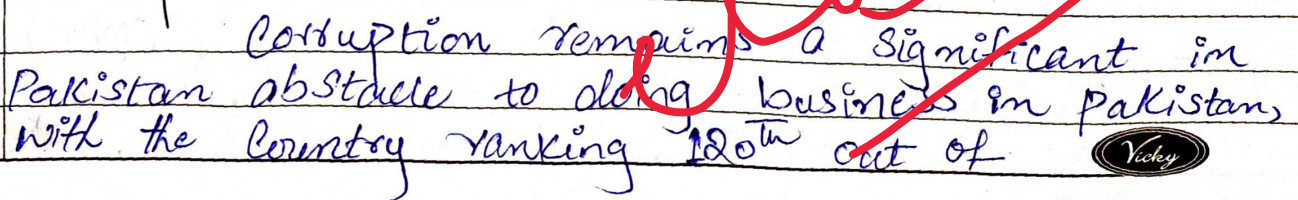 Corruption remains a significant in
Pakistan abstacle to doing business in pakistan,
with the Country ranking 120th out of
Vicky